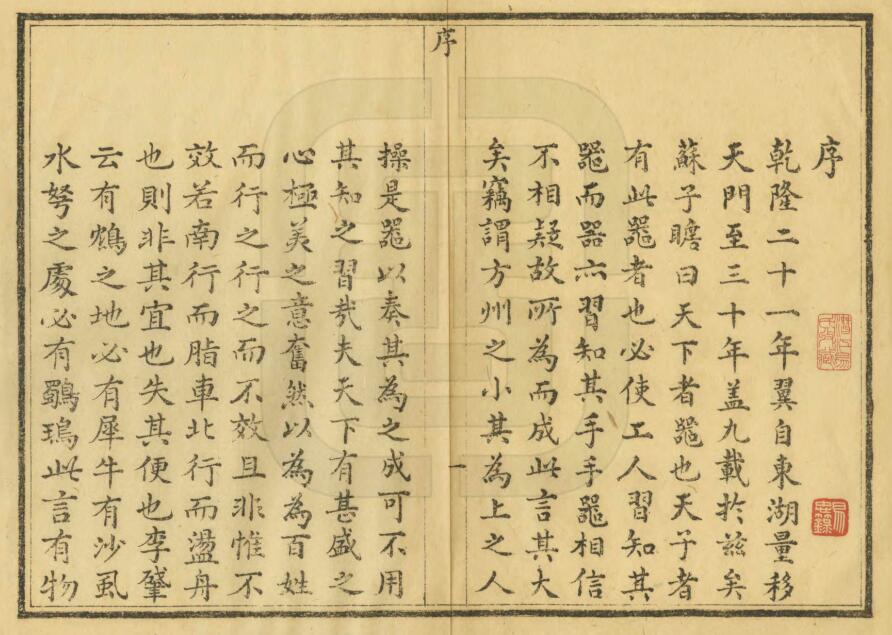 序
乾隆二十一年翼自東湖量移
天門至三十年盖九載扵兹矣
蘇子瞻曰天下者噐也天子者
有此噐者也必使工人習知其
噐而器亦習知其手手噐相信
不相疑故所為而成此言其大
矣竊謂方州之小其為上之人
序
一
操是噐以奏其為之成可不用
其知之習㢤夫天下有甚盛之
心極美之意奮然以為為百姓
而行之行之而不效且非惟不
效若南行而脂車北行而盪舟
也則非其宜也失其便也李肇
云有鷦之地必有犀牛有沙虱
水弩之處必有鸀鳿此言有物